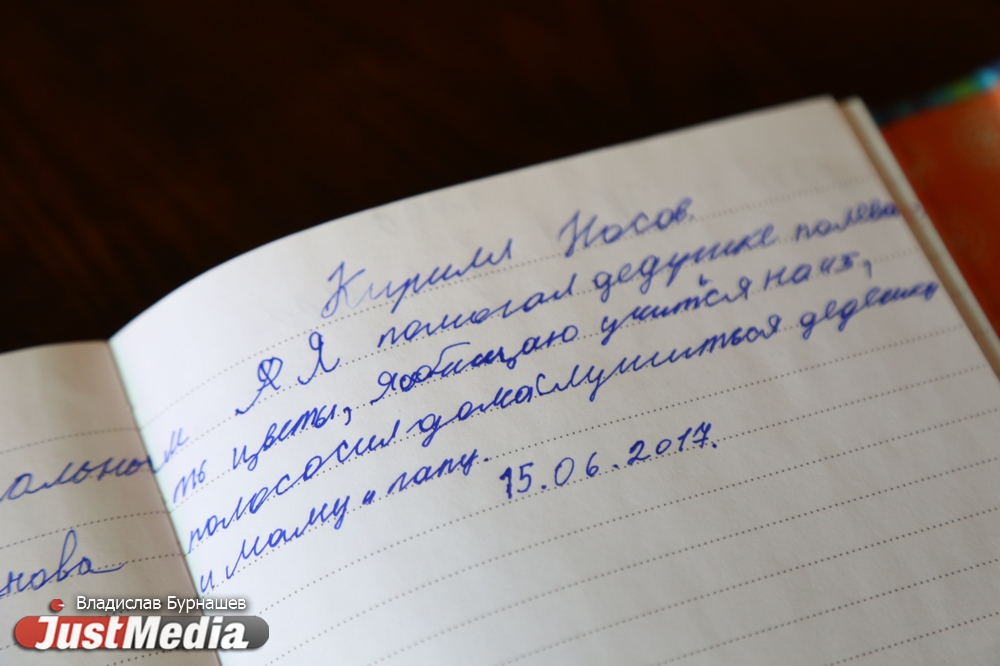 Кирилл Носов.
Я Я помогал дедушке полева-
ть цветы, я обищаю учиться на 4,5,
пылососил дома слушиться дедешку
и маму и папу.
15.06.2017.
альным
нова
Владислав Бурнашев
JustMedia